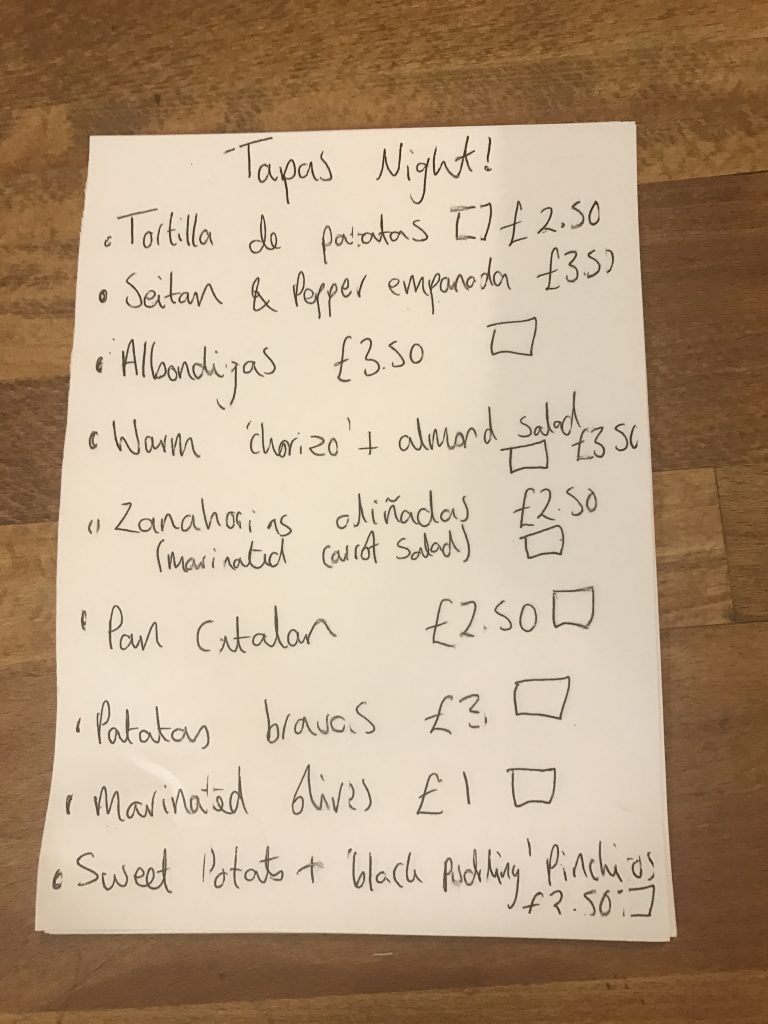 Tapas Night!
Tortilla de patatas £2.50
Seitan & Pepper empanada £3.50
Albondigas £3.50
Warm 'chorizo' + almond salad
£3.50
Zanahorias aliñadas £2.50
(marinated carrot salad)
Pan Catalan £2.50
Patatas bravas £3.
Marinated olives £1
Sweet Potato + 'black pudding' Pinchios
£2.50